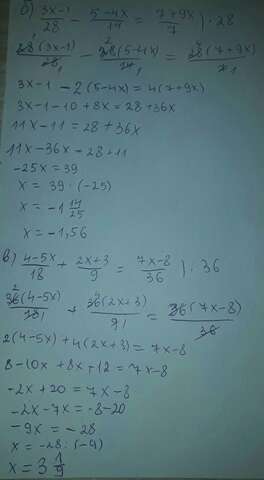 б) 3x-1/28 - 5-4x/14 = 7+9x/7 |· 28
28(3x-1)/28 1 - 2 28(5-4x)/14 1 = 4 28(7+9x)/7 1
3x-1 -2(5-4x)=4(7+9x)
3x-1-10+8x=28+36x
11x-11=28+36x
11x-36x=28+11
-25x=39
x = 39:(-25)
x = -1 14/25
x = -1,56
в) 4-5x/18 + 2x+3/9 = 7x-8/36 |· 36
2 36(4-5x)/18 1 + 4 36(2x+3)/9 1 = 36(7x-8)/36
2(4-5x)+4(2x+3)=7x-8
8-10x+8x+12=7x-8
-2x+20=7x-8
-2x-7x=-8-20
-9x=-28
x=-28:(-9)
x=3 1/9